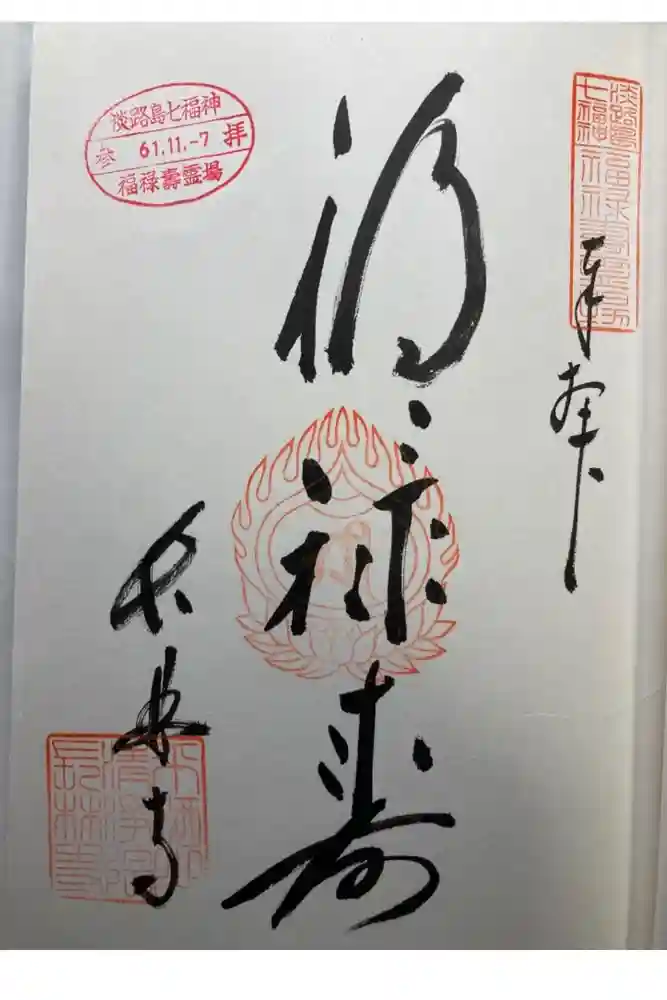 奉拝
淡路島
七福神
福禄寿霊場
福禄寿
長林寺
淡路島七福神
参 61.11.-7 拝
福禄壽霊場
長林寺